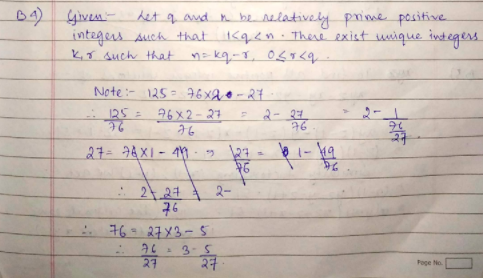 B4) Given:- Let q and n be relatively prime positive
integers such that 1<q<n. There exist unique integers
k, r such that n=kq-r, 0≤r<q.
Note:- 125 = 76×2 - 27
∴ 125/76 = (76×2-27)/76 = 2 - 27/76 = 2 - 1/(76/27)
27 = 76×1 - 49. ⇒ 27/76 = 1 - 49/76
∴ 2 - 27/76 = 2-
∴ 76 = 27×3 - 5
∴ 76/27 = 3 - 5/27.
Page No.